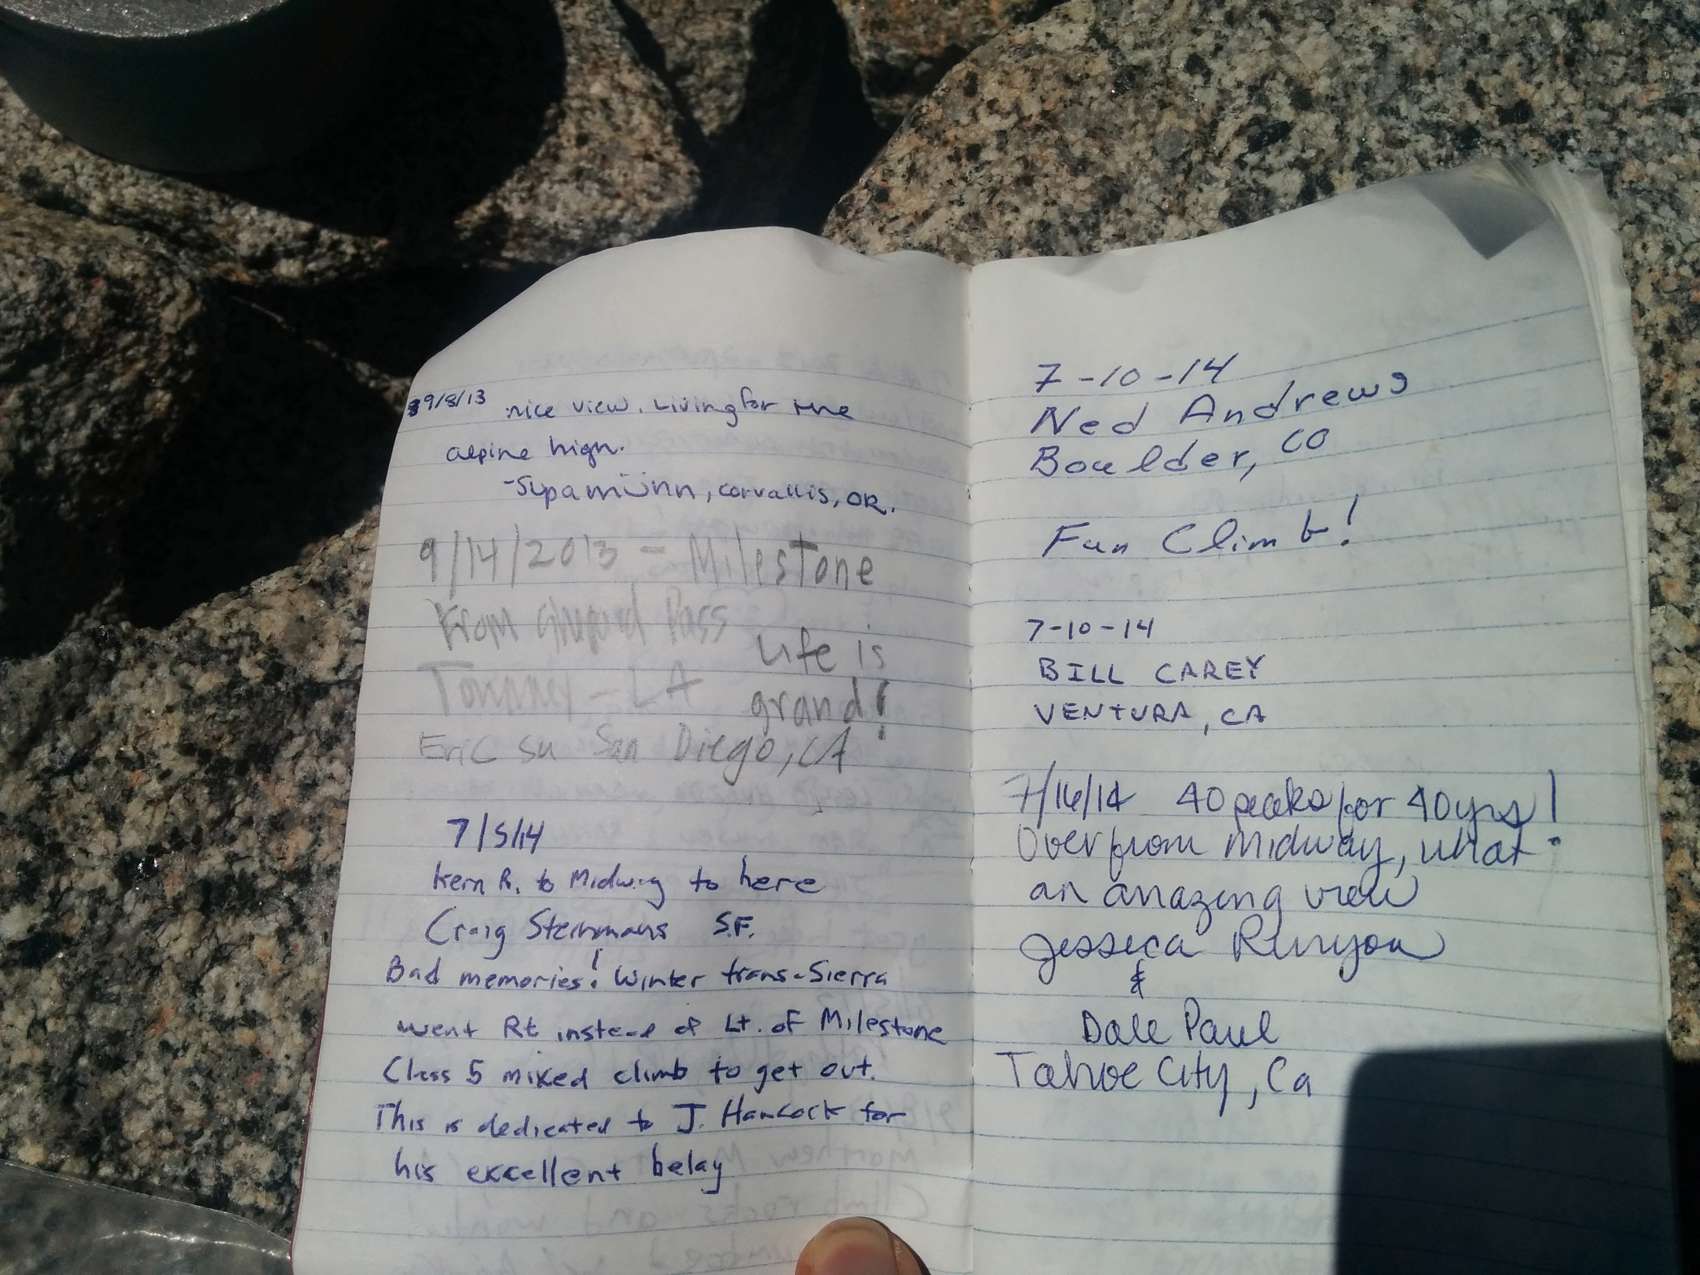 9/8/13 nice view. Living for the
alpine high.
Corvallis, OR.
9/14/2013 - Milestone
From Pass
Life is
LA
grand!
Eric Su San Diego, CA
7/5/14
Kern R. to Midway to here
Craig S.F.
Bad memories! Winter trans-Sierra
went Rt instead of Lt. of Milestone
Class 5 mixed climb to get out.
This is dedicated to J. Hancock for
his excellent belay
7-10-14
Ned Andrews
Boulder, CO
Fun Climb!
7-10-14
BILL CAREY
VENTURA, CA
7/16/14 40 peaks for 40yrs!
Over from Midway, what
an amazing view
Jessica Runyon
&
Dale Paul
Tahoe City, Ca